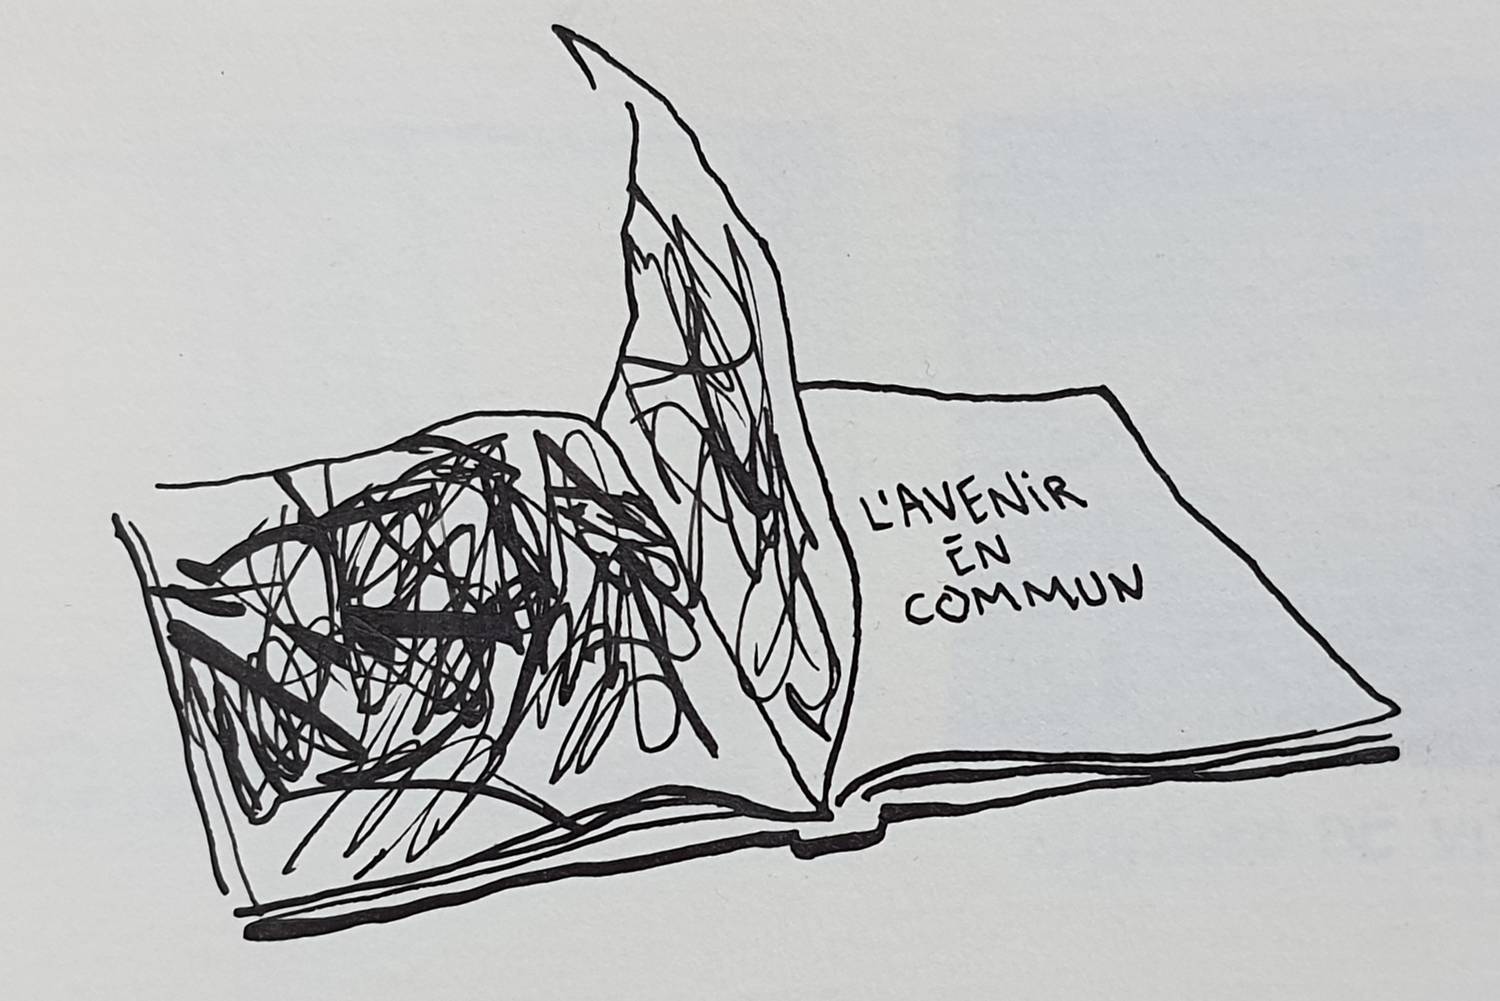 L'AVENiR
EN
COMMUN